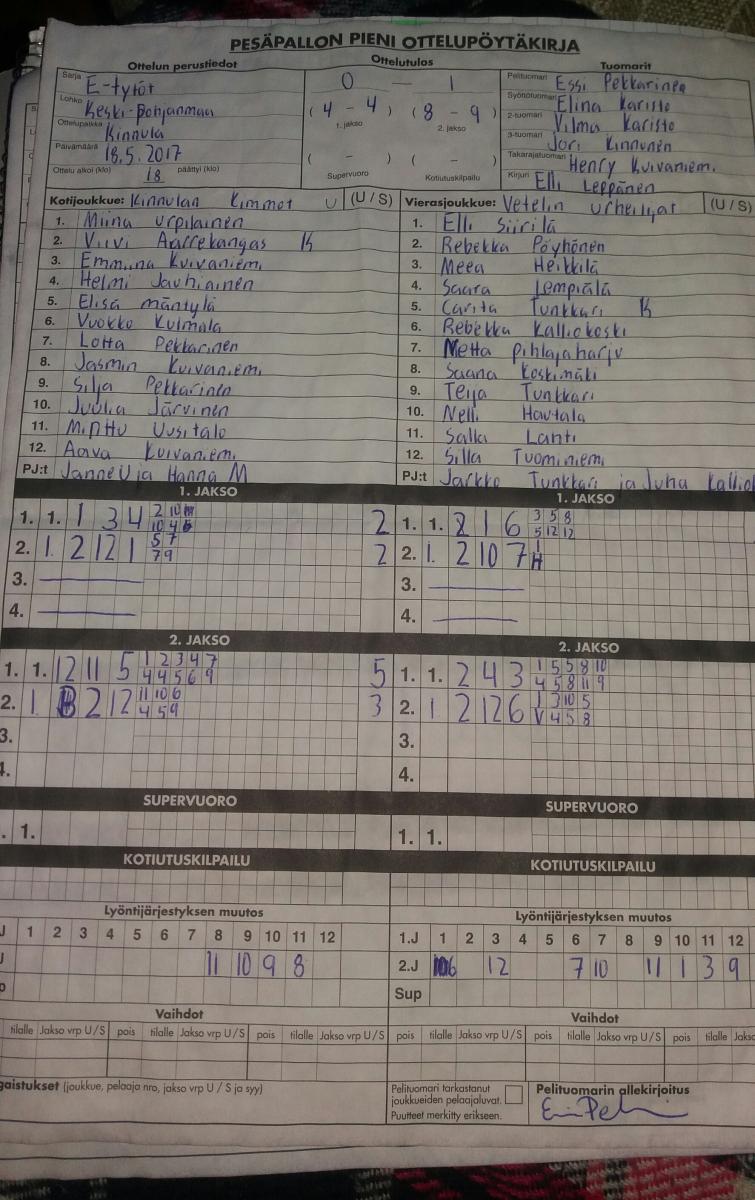 PESÄPALLON PIENI OTTELUPÖYTÄKIRJA
Ottelun perustiedot Ottelutulos Tuomarit
Sarja E-tytöt 0 — 1 Pelituomari Essi Pekkarinen
Lohko Keski-Pohjanmaa ( 4 - 4 ) ( 8 - 9 ) Syöttötuomari Elina Karisto
1. jakso 2. jakso
Ottelupaikka Kinnula 2-tuomari Vilma Karisto
Päivämäärä 18.5.2017 ( - ) ( - ) 3-tuomari Jori Kinnunen
Takarajatuomari Henry Kuivaniemi
Ottelu alkoi (klo) 18 päättyi (klo) Supervuoro Kotiutuskilpailu Kirjuri Elli Leppänen
Kotijoukkue: Kinnulan Kimmot U (U / S) Vierasjoukkue: Vetelin Urheilijat (U / S)
1. Miina Urpilainen 1. Elli Siirilä
2. Viivi Aarrekangas K 2. Rebekka Pöyhönen
3. Emmiina Kuivaniemi 3. Meea Heikkilä
4. Helmi Jauhiainen 4. Saara Lempiälä
5. Elisa Mäntylä 5. Carita Tunkkari K
6. Vuokko Kulmala 6. Rebekka Kalliokoski
7. Lotta Pekkarinen 7. Metta Pihlajaharju
8. Jasmin Kuivaniemi 8. Saana Koskimäki
9. Silja Pekkarinen 9. Teija Tunkkari
10. Juulia Järvinen 10. Nelli Hautala
11. Minttu Uusitalo 11. Salla Lahti
12. Aava Kuivaniemi 12. Silla Tuominiemi
PJ:t Janne U ja Hanna M PJ:t Jarkko Tunkkari ja Juha
1. JAKSO 1. JAKSO
1. 1. 1 3 4 2 10 2 1. 1. 2 1 6 3 5 8
10 4 6 5 12 12
2. 1. 2 12 1 5 7 2 2. 1. 2 10 7 1
7 9 H
3. 3.
4. 4.
2. JAKSO 2. JAKSO
1. 1. 12 11 5 1 2 3 4 7 5 1. 1. 2 4 3 1 5 5 8 10
4 4 5 6 9 4 5 8 11 9
2. 1. 2 12 11 10 6 3 2. 1. 2 12 6 1 3 10 5
4 5 9 V 4 5 8
3. 3.
4. 4.
SUPERVUORO SUPERVUORO
. 1. 1. 1.
KOTIUTUSKILPAILU KOTIUTUSKILPAILU
Lyöntijärjestyksen muutos Lyöntijärjestyksen muutos
J 1 2 3 4 5 6 7 8 9 10 11 12 1.J 1 2 3 4 5 6 7 8 9 10 11 12
J 11 10 9 8 2.J 6 12 7 10 11 1 3 9
p Sup
Vaihdot Vaihdot
tilalle Jakso vrp U / S pois tilalle Jakso vrp U / S pois tilalle Jakso vrp U / S pois tilalle Jakso vrp U / S pois tilalle Jakso vrp U / S pois tilalle Jakso
gaistukset (joukkue, pelaaja nro, jakso vrp U / S ja syy) Pelituomari tarkastanut Pelituomarin allekirjoitus
joukkueiden pelaajaluvat.
Puutteet merkitty erikseen.